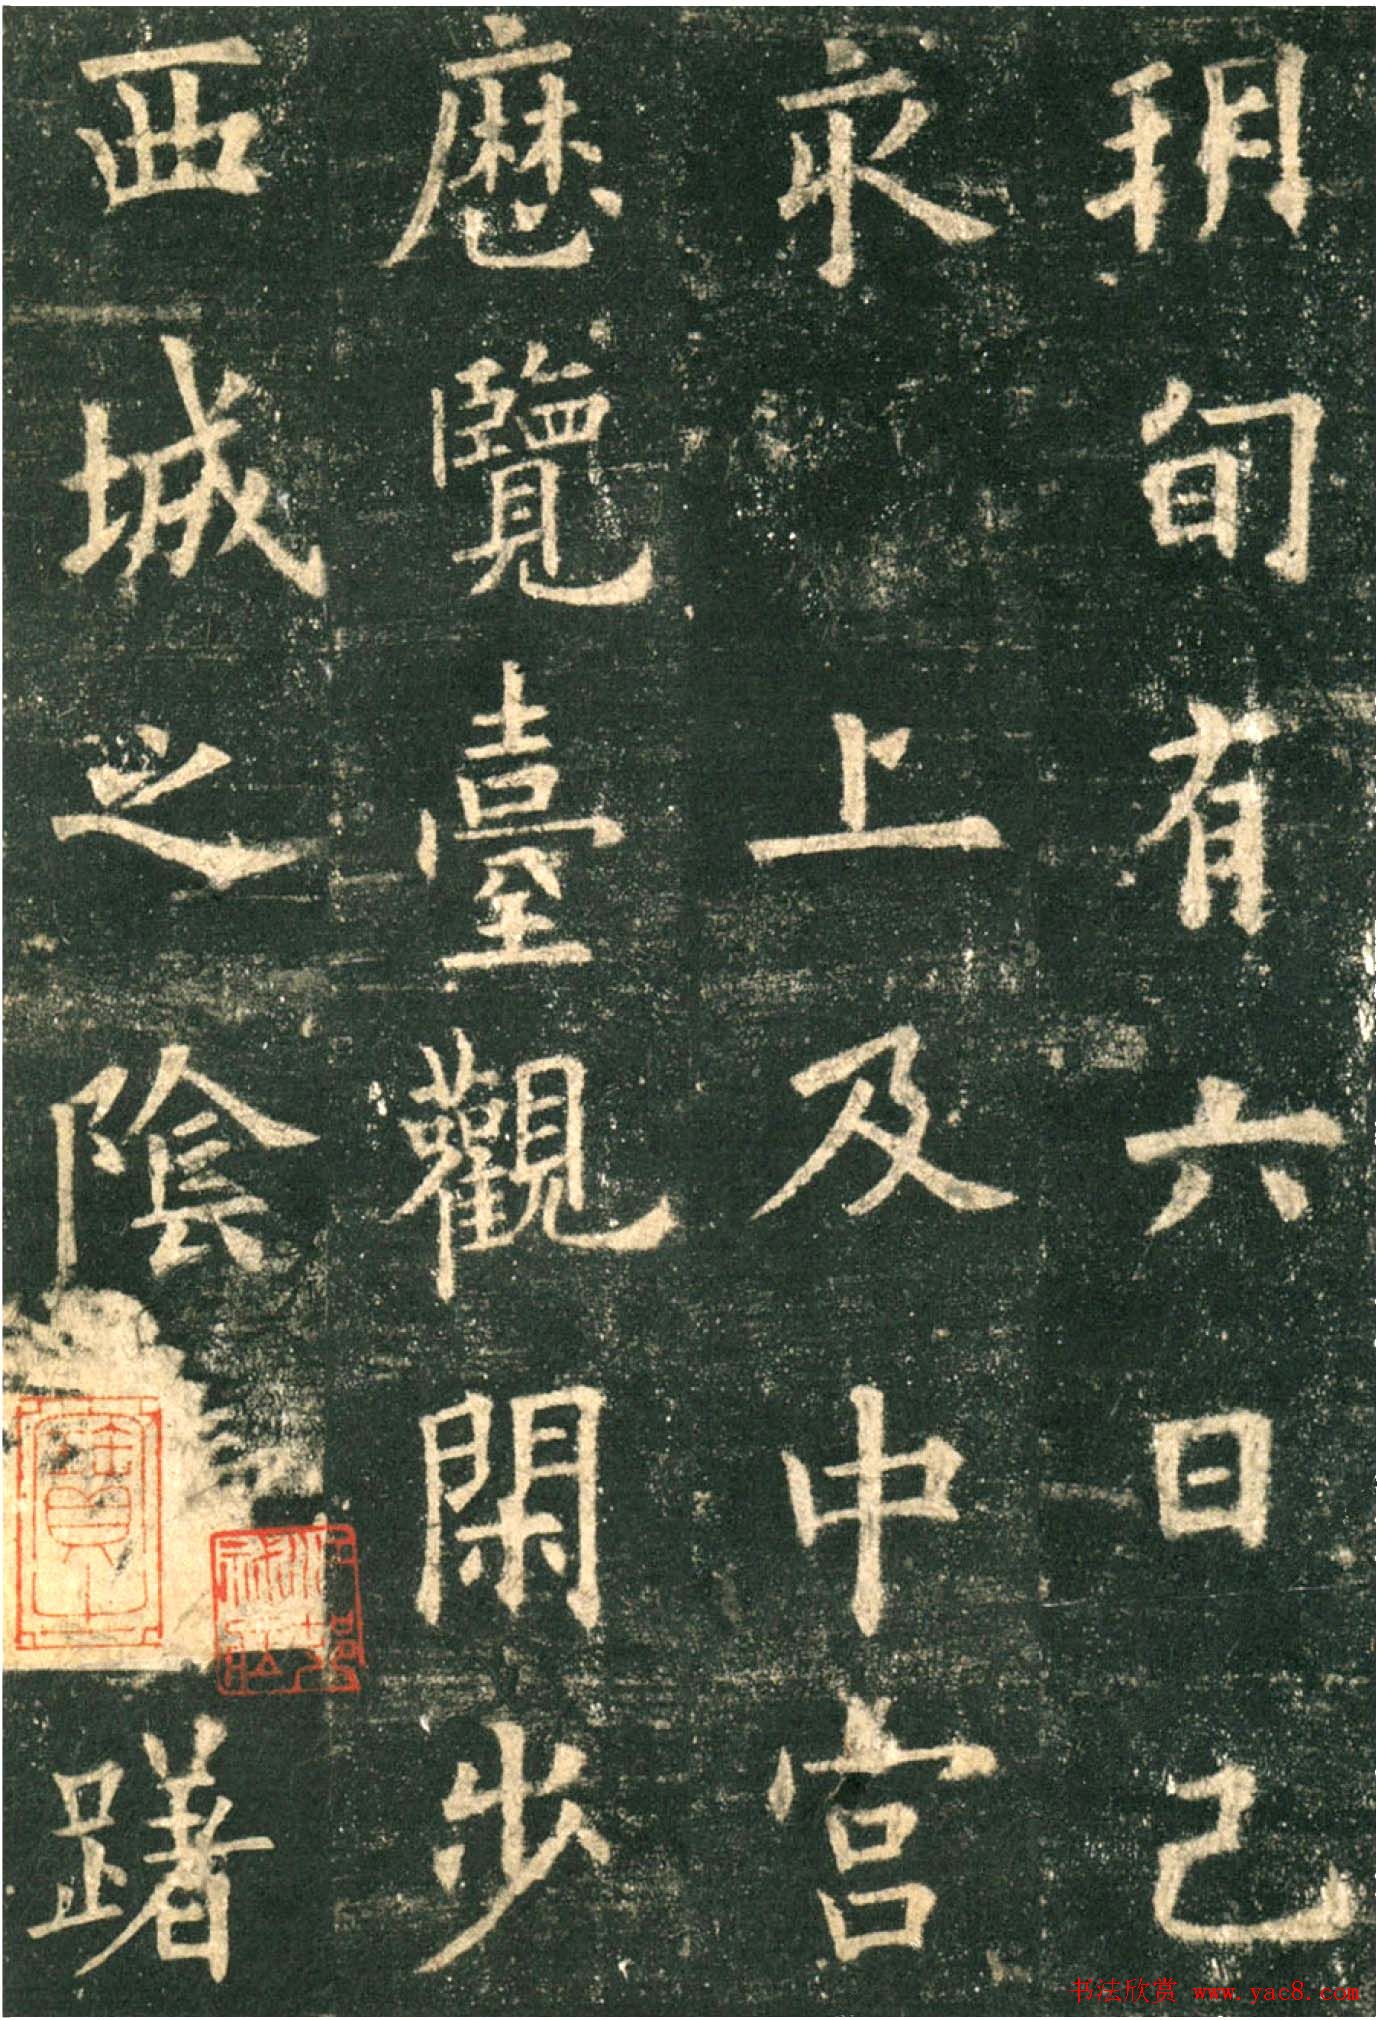 朔旬有六日己
亥上及中宫
歷覽臺觀閑步
西城之陰躇
书法欣赏 www.yac8.com